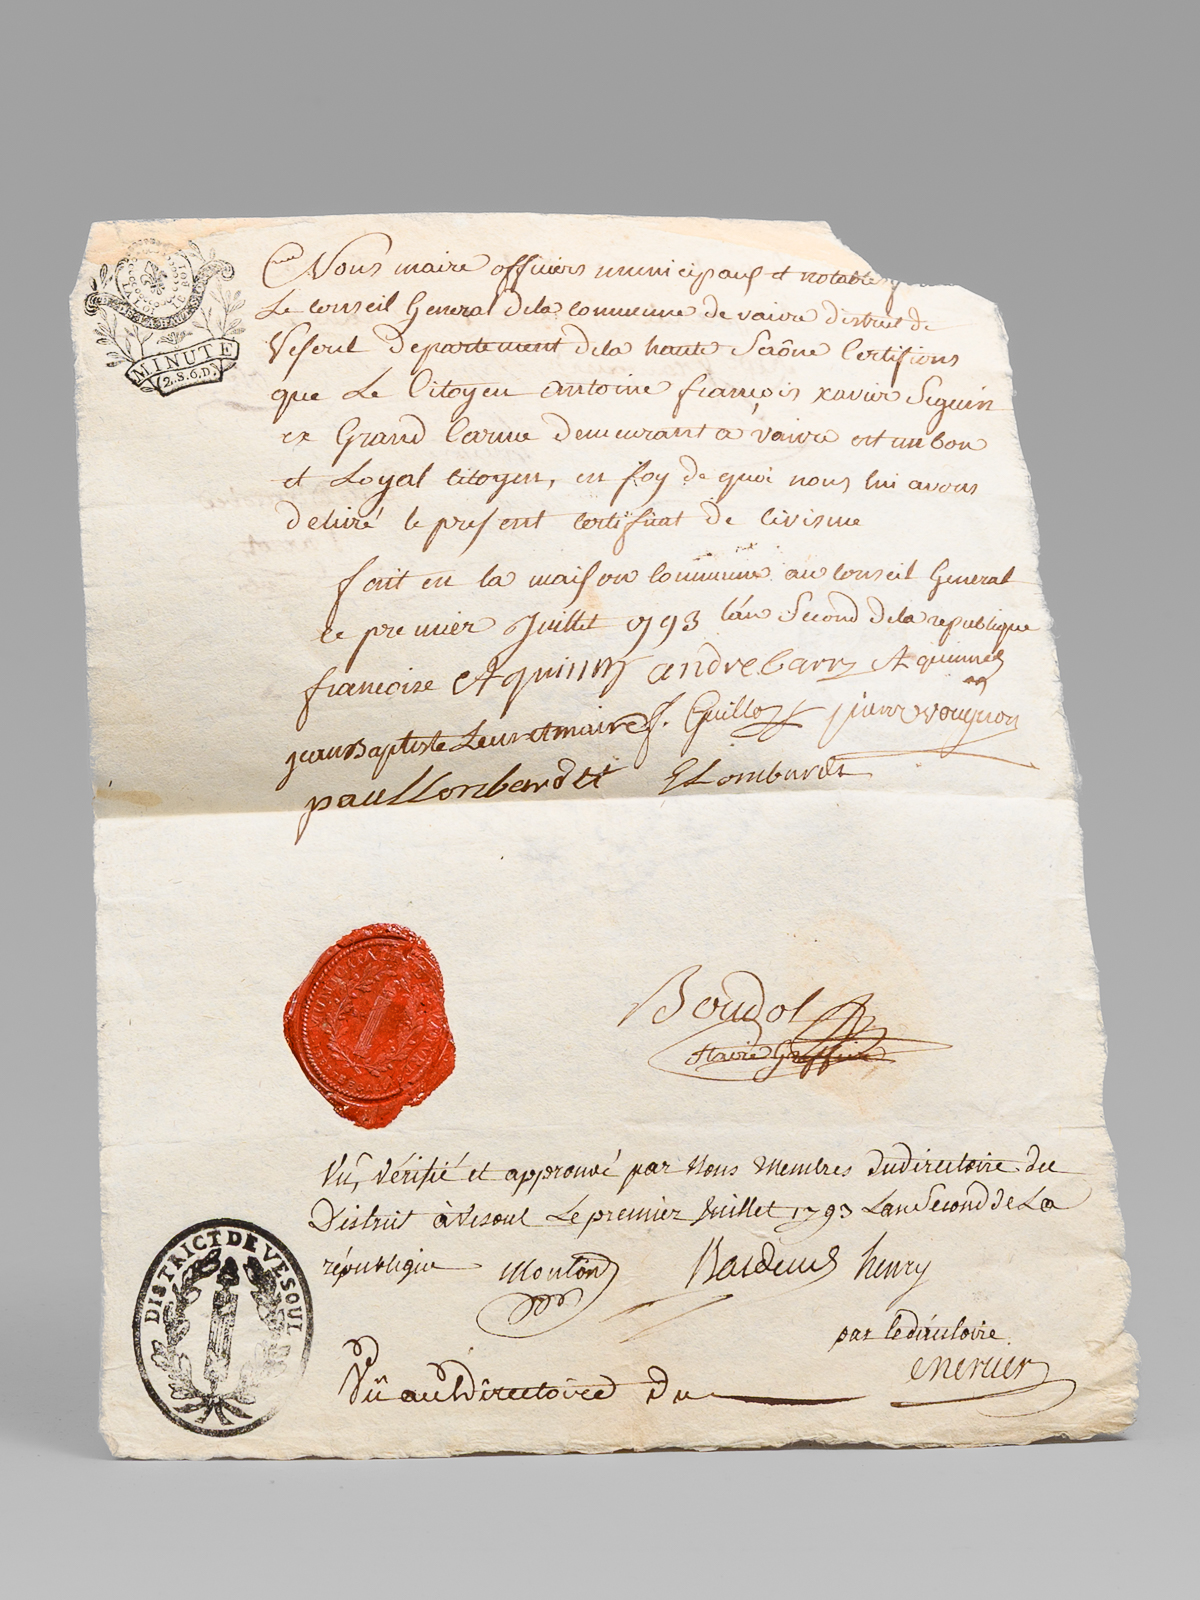 MINUTE
2.S.6.D.
Nous maire officiers municipaux et notables
Le Conseil General dela Commune de vaivre district de
Vesoul departement dela haute Saône Certifions
que Le Citoyen antoine françois xavier Seguin
ex Grand Carme demeurant a vaivre est un bon
et Loyal citoyen, en foy de quoi nous lui avons
delivré le present certificat de civisme
fait en la maison Commune au Conseil General
ce premier Juillet 1793 l'an Second dela republique
francoise andre barry
jean Baptiste maire f. Guilloz pierre vougnon
paul Lombardet Lombardet
Boudot
Vû, Vérifié et approuvé par Nous Membres dudirectoire du
District à Vesoul Le premier Juillet 1793 Lan Second de La
république henry
DISTRICT DE VESOUL
par le directoire
Vû au Directoire du